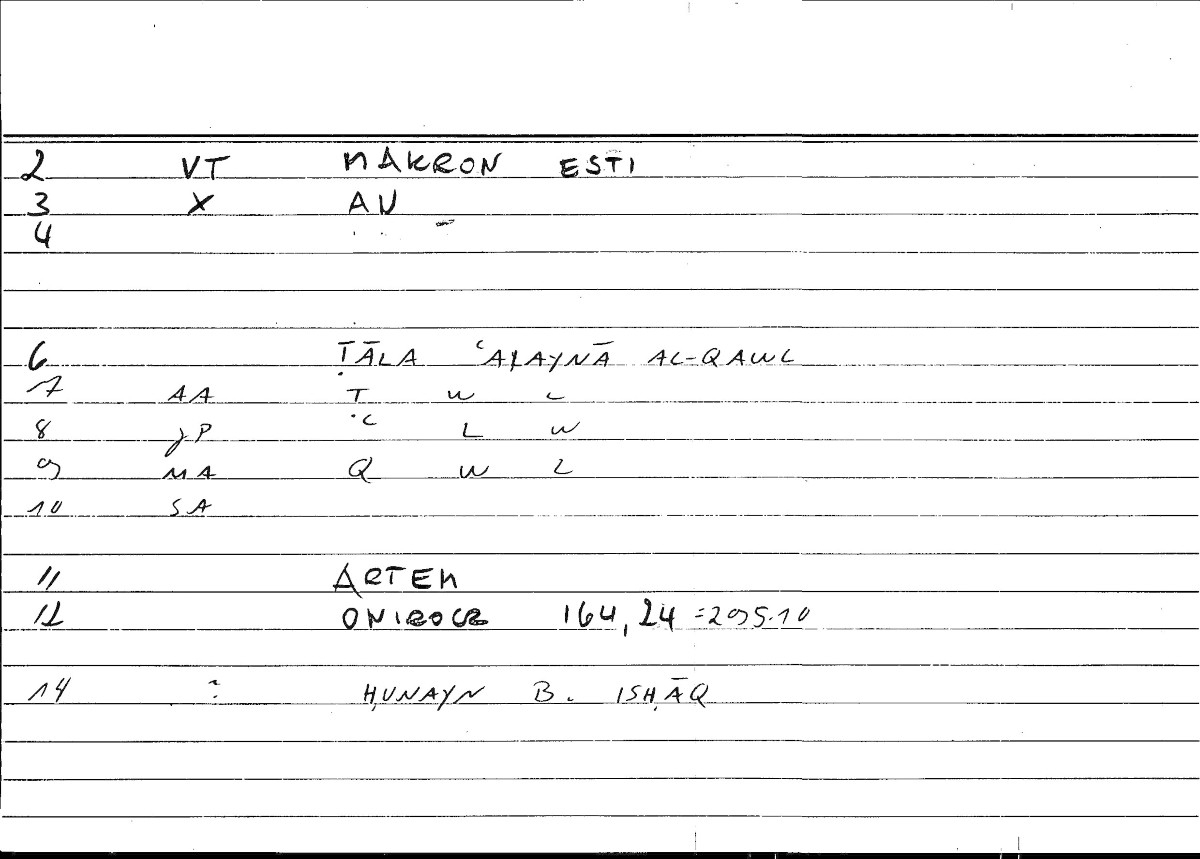 2 VT MAKRON ESTI
3 X AN
4
6 ṬĀLA ʿALAYNĀ AL-QAWL
7 AA Ṭ W L
8 JP ʿ L W
9 MA Q W L
10 SA
11 ARTEM
12 ONIROCR 164,24 =295.10
14 : ḤUNAYN B. ISḤĀQ